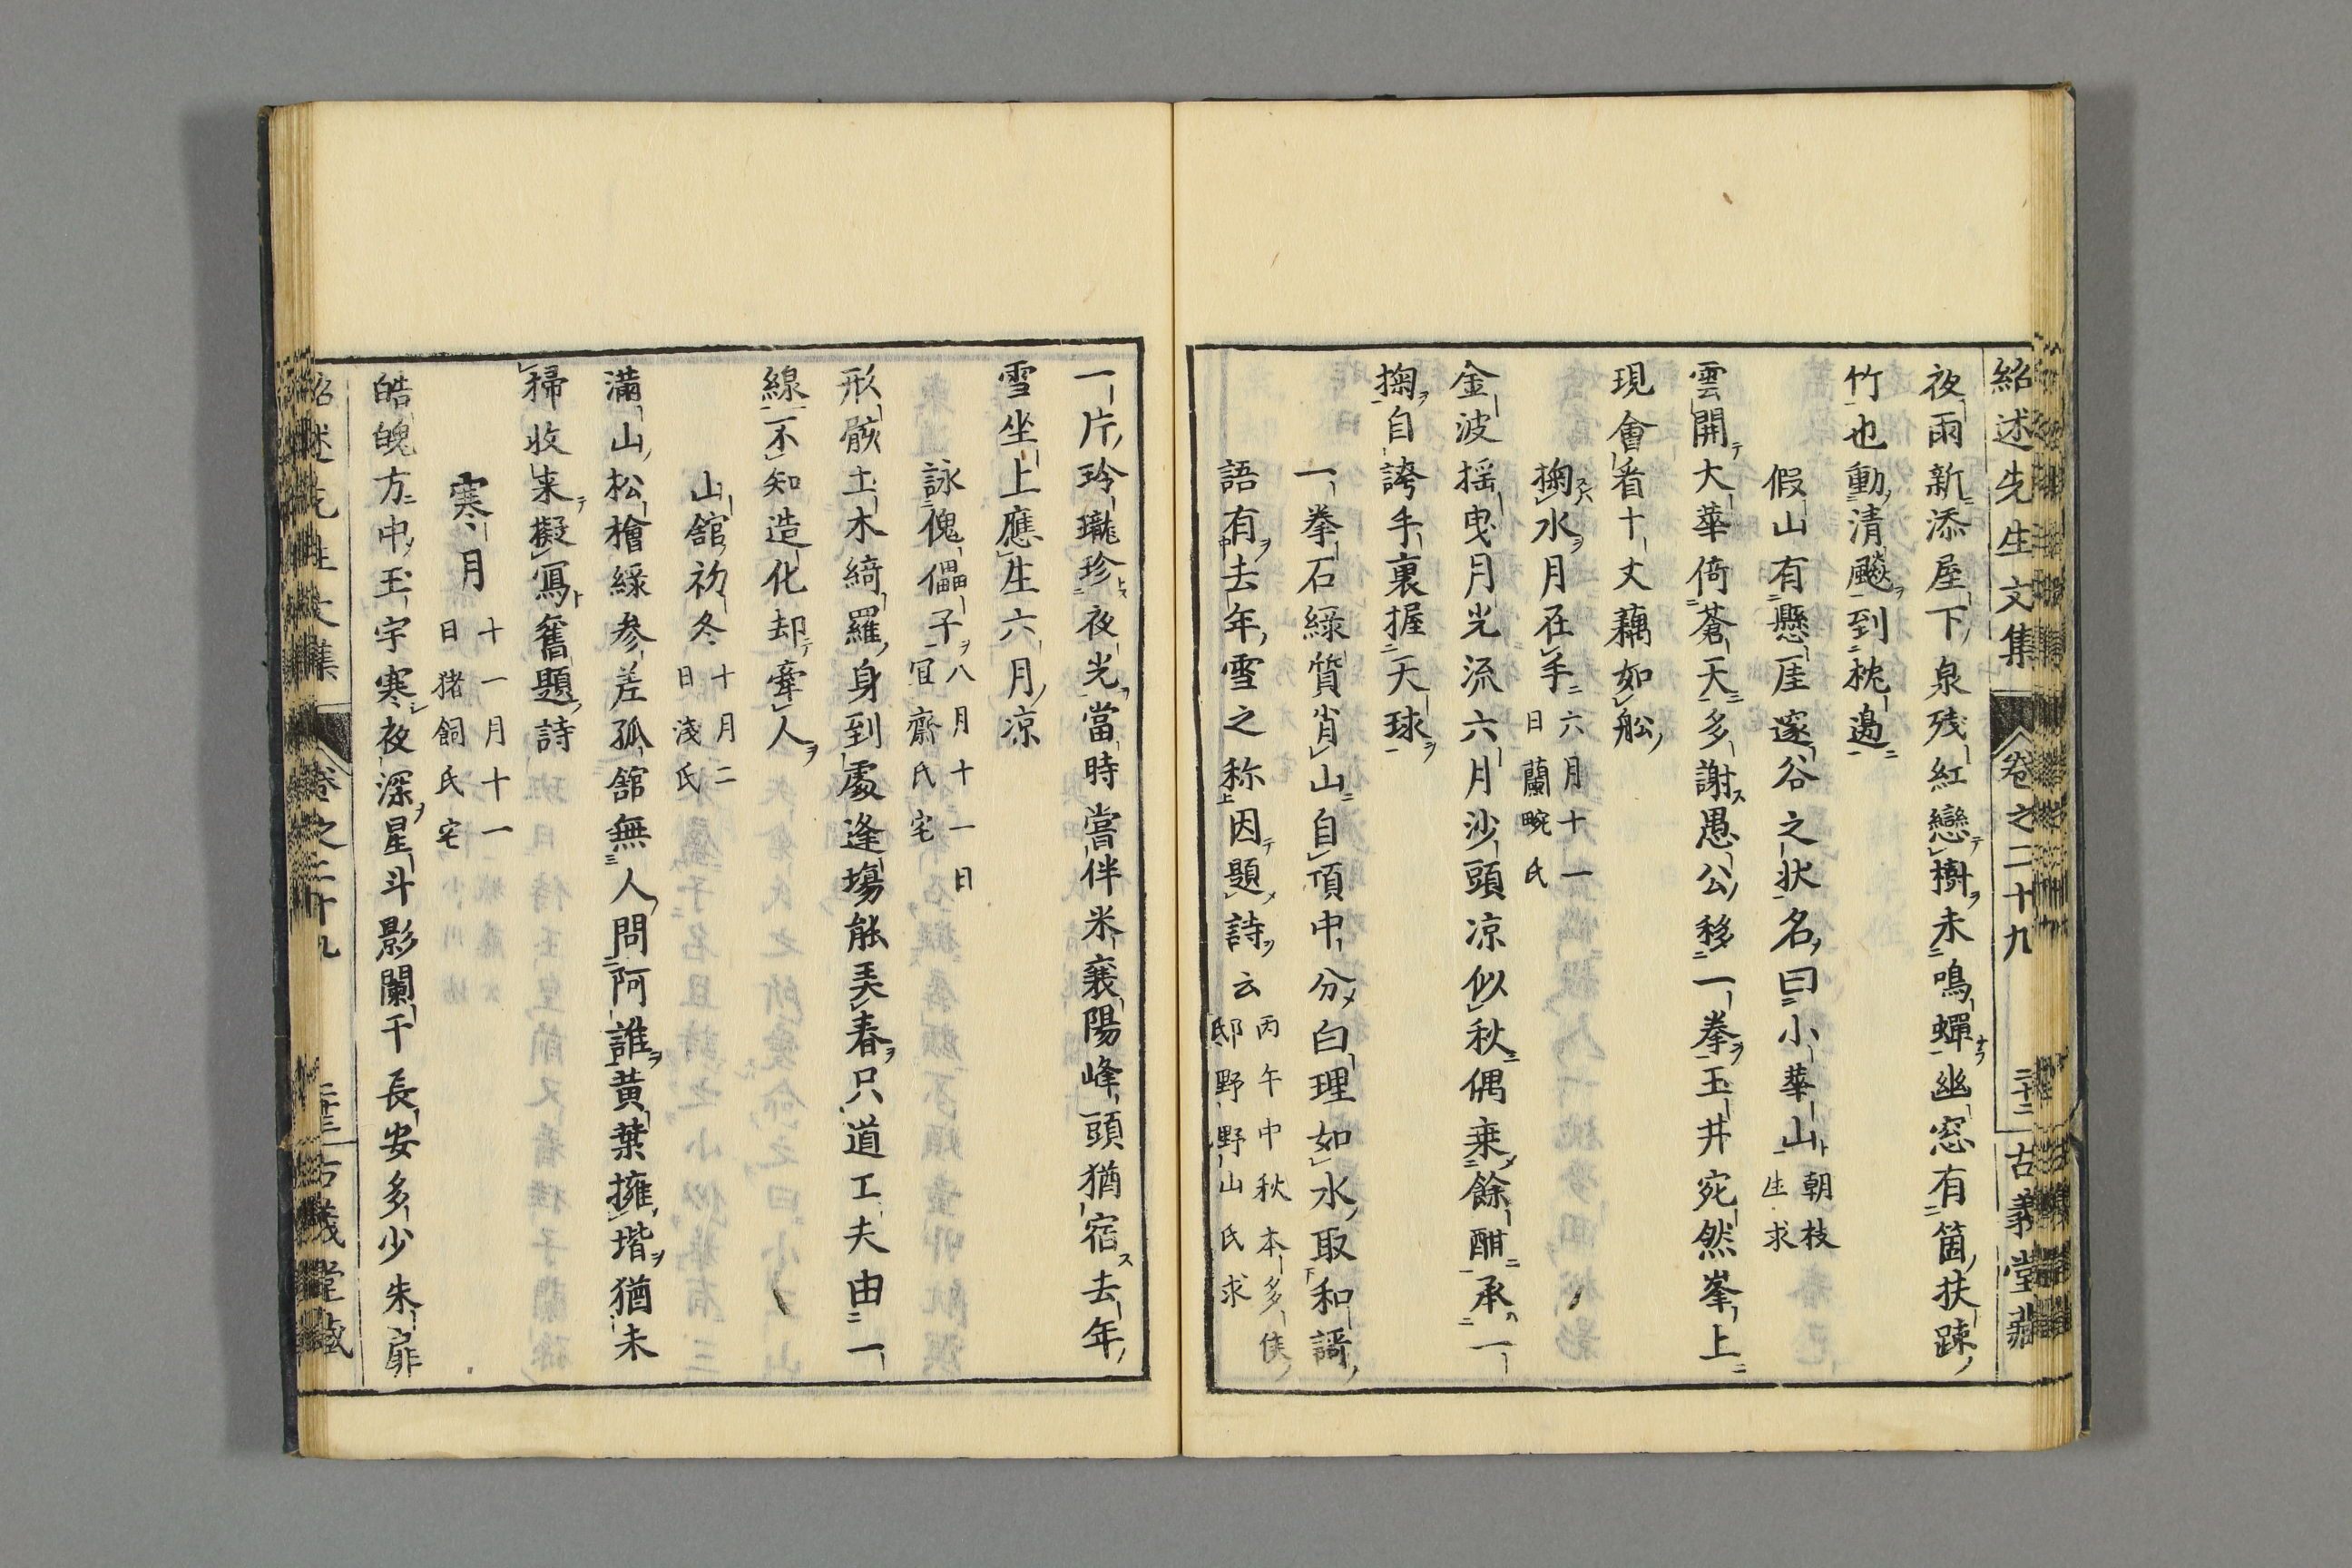 紹述先生文集 卷之二十九 二十二 古義堂藏
夜雨新添屋下泉殘紅戀樹未鳴蟬幽窓有箇扶踈
竹也動清颸到枕邊
假山有懸厓邃谷之狀名曰小華山朝枝
生求
雲開大華倚蒼天多謝愚公移一拳玉井宛然峯上
現會看十丈藕如舩
掬水月在手六月十一
日蘭畹氏
金波揺曳月光流六月沙頭凉似秋偶乗餘酣承一
掬自誇手裏握天球
一拳石緑質肖山自頂中分白理如水取和謌
語有去年雪之称因題詩云丙午中秋本多侯
邸野野山氏求
一片玲瓏珍夜光當時嘗伴米襄陽峰頭猶宿去年
雪坐上應生六月凉
詠傀儡子八月十一日
冝齋氏宅
形骸土木綺羅身到處逢塲能弄春只道工夫由一
線不知造化却牽人
山舘初冬十月二
日淺氏
滿山松檜緑参差孤舘無人問阿誰黄葉擁堦猶未
掃收来擬寫舊題詩
寒月十一月十一
日猪飼氏宅
皓魄方中玉宇寒夜深星斗影闌干長安多少朱扉
紹述先生文集 卷之二十九 二十三 古義堂藏